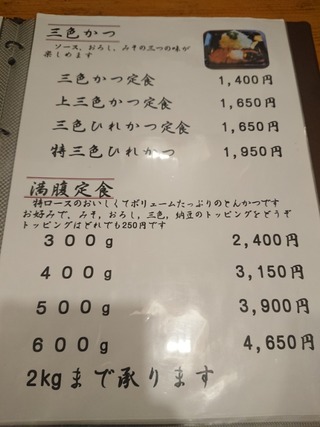 三色かつ
ソース、おろし、みその三つの味が
楽しめます
三色かつ定食 1,400円
上三色かつ定食 1,650円
三色ひれかつ定食 1,650円
特三色ひれかつ 1,950円
満腹定食
特ロースのおいしくてボリュームたっぷりのとんかつです
お好みで、みそ、おろし、三色、納豆のトッピングをどうぞ
トッピングはどれでも250円です
300g 2,400円
400g 3,150円
500g 3,900円
600g 4,650円
2kgまで承ります